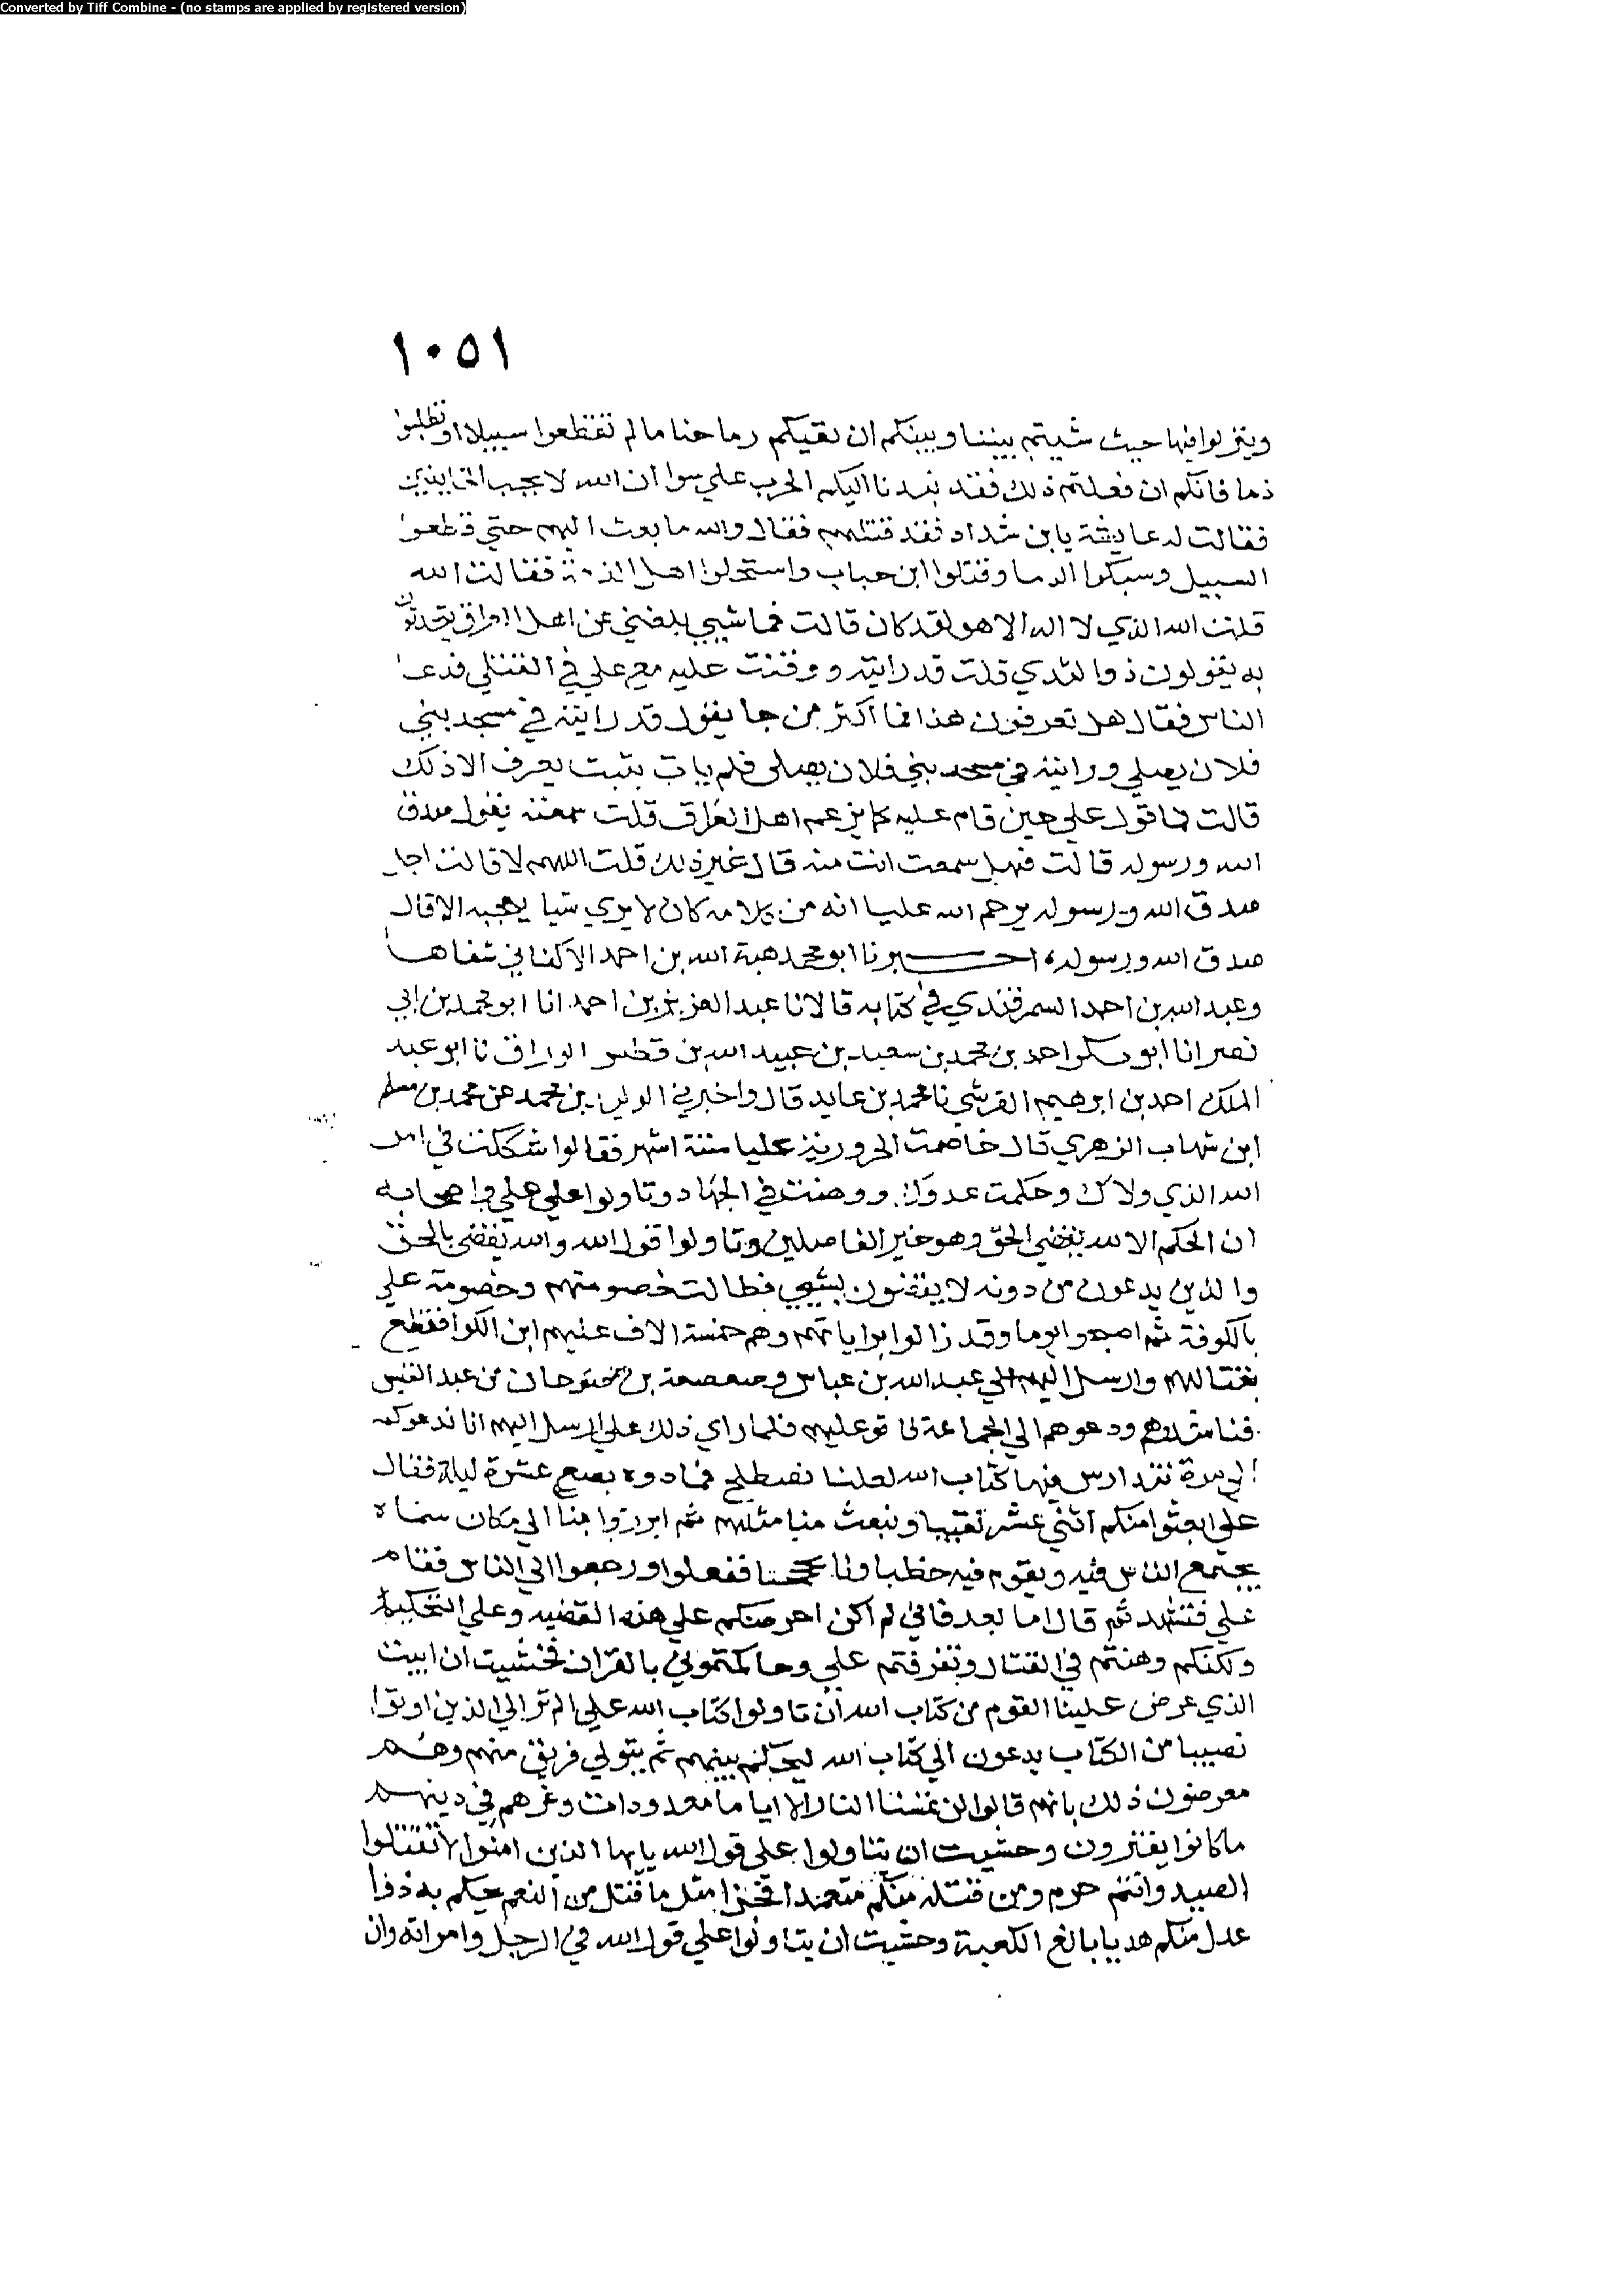 Converted by Tiff Combine - (no stamps are applied by registered version)
١٠٥١
وينزلوا فيها حيث شيتم بيننا وبينكم ان نقيكم رماحنا مالم تقطعوا سبيلا او تطلبوا
ذما فانكم ان فعلتم ذلك فقد نبذنا اليكم الحرب علي سوا ان الله لا يحب الخاينين
فقالت له عايشة يابن شداد فقد قتلهم فقال والله ما بعث اليهم حتي قطعوا
السبيل وسبكوا الدما وقتلوا ابن حباب واستحلوا اهل الذمة فقالت الله
قلت الله الذي لا اله الا هو لقد كان قالت فما شيي بلغني عن اهل العراق يتحدثون
به يقولون ذوا لثدي قلت قد رايته ووقفت عليه مع علي في القتلي فدعا
الناس فقال هل تعرفون هذا فما اكثر من جا يقول قد رايته في مسجد بني
فلان يصلي ورايته في مسجد بني فلان يصلي فلم يات بثبت يعرف الا ذلك
قالت فما قول علي حين قام عليه كما يزعم اهل العراق قلت سمعته يقول صدق
الله ورسوله قالت فهل سمعت انت منه قال غير ذلك قلت اللهم لا قالت اجل
صدق الله ورسوله يرحم الله عليا انه من كلامه كان لا يري شيا يعجبه الا قال
صدق الله ورسوله، اخبرنا ابو محمد هبة الله بن احمد الاكفاني شفاها
وعبد الله بن احمد السمرقندي في كتابه قالا نا عبد العزيز بن احمد انا ابو محمد بن ابي
نصر انا ابو بكر احمد بن محمد بن سعيد بن عبيد الله بن فطيس الوراق نا ابو عبد
الملك احمد بن ابرهيم القرشي نا محمد بن عايد قال واخبرني الوليد بن محمد عن محمد بن مسلم
ابن شهاب الزهري قال خاصمت الحرورية عليا ستة اشهر فقالوا شككت في امر
الله الذي ولاك وحكمت عدوك ووهنت في الجهاد وتاولوا علي علي واصحابه
ان الحكم الا لله يقضي الحق وهو خير الفاصلين وتاولوا قول الله والله يقضي بالحق
والذين يدعون من دونه لا يقضون بشيي فطالت خصومتهم وخصومة علي
بالكوفة ثم اصبحوا يوما وقد زالوا براياتهم وهم خمسة الاف عليهم ابن الكوا فقطع
بقتالهم وارسل اليهم علي عبد الله بن عباس وصعصعة بن صوحان من عبد القيس
فناشدوهم ودعوهم الي الجماعة فابو عليهم فلما راي ذلك علي ارسل اليهم انا ندعوكم
الي مدة نتدارس فيها كتاب الله لعلنا نصطلح فمادوه بضع عشرة ليلة فقال
علي ابعثوا منكم اثني عشر نقيبا ونبعث منا مثلهم ثم ابرزوا بنا الي مكان سماه
يجتمع الناس فيه ويقوم فيه خطباونا بحججنا ففعلوا ورجعوا الي الناس فقام
علي فتشهد ثم قال اما بعد فاني لم اكن احرصكم علي هذه القضيه وعلي التحكيم
ولكنكم وهنتم في القتال وتفرقتم علي وحاكمتموني بالقران فخشيت ان ابيت
الذي عرض علينا القوم من كتاب الله ان تاولوا كتاب الله علي الم تر الي الذين اوتوا
نصيبا من الكتاب يدعون الي كتاب الله ليحكم بينهم ثم يتولي فريق منهم وهم
معرضون ذلك بانهم قالوا لن تمسنا النار الا اياما معدودات وغرهم في دينهم
ما كانوا يفترون وخشيت ان يتاولوا علي قول الله يايها الذين امنوا لا تقتلوا
الصيد وانتم حرم ومن قتله منكم متعمدا فجزا مثل ما قتل من النعم يحكم به ذوا
عدل منكم هديا بالغ الكعبة وخشيت ان يتاولوا علي قول الله في الرجل وامراته وان